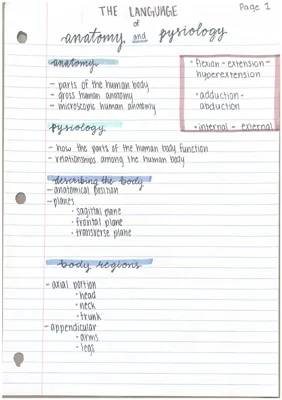 THE LANGUAGE
of
anatomy and pysiology
Page 1
anatomy
- parts of the human body
- gross human anatomy
- microscopic human anatomy
• flexion - extension -
hyperextension
• adduction -
abduction
• internal - external
pysiology
- how the parts of the human body function
- relationships among the human body
describing the body
- anatomical position
- planes
• sagittal plane
• frontal plane
• transverse plane
body regions
- axial portion
• head
• neck
• trunk
- appendicular
• arms
• legs